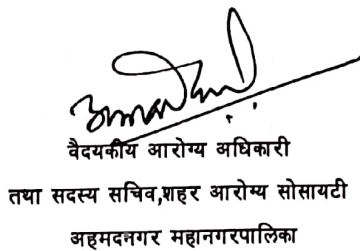 वैदयकीय आरोग्य अधिकारी
तथा सदस्य सचिव,शहर आरोग्य सोसायटी
अहमदनगर महानगरपालिका